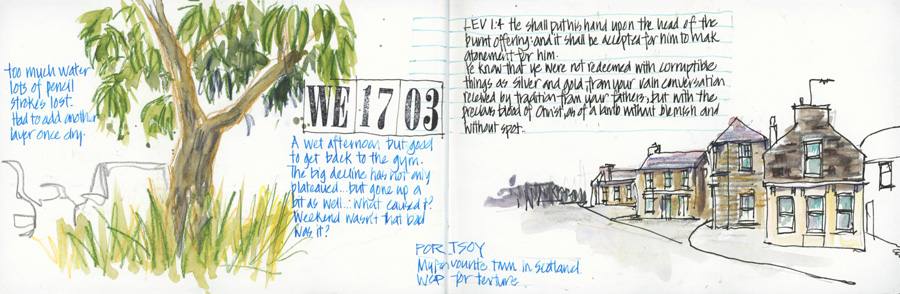 too much water
lots of pencil
strokes lost.
Had to add another
layer once dry.
WE 17 03
A wet afternoon but good
to get back to the gym.
The big decline has not only
plateaued...but gone up a
bit as well... What caused it?
Weekend wasn't that bad
was it?
LEV 1:4 He shall put his hand upon the head of the
burnt offering: and it shall be accepted for him to make
atonement for him.
Ye know that ye were not redeemed with corruptible
things as silver and gold, from your vain conversation
received by tradition from your fathers; but with the
precious blood of Christ, as of a lamb without blemish and
without spot.
PORTSOY
My favourite town in Scotland
WCP for texture